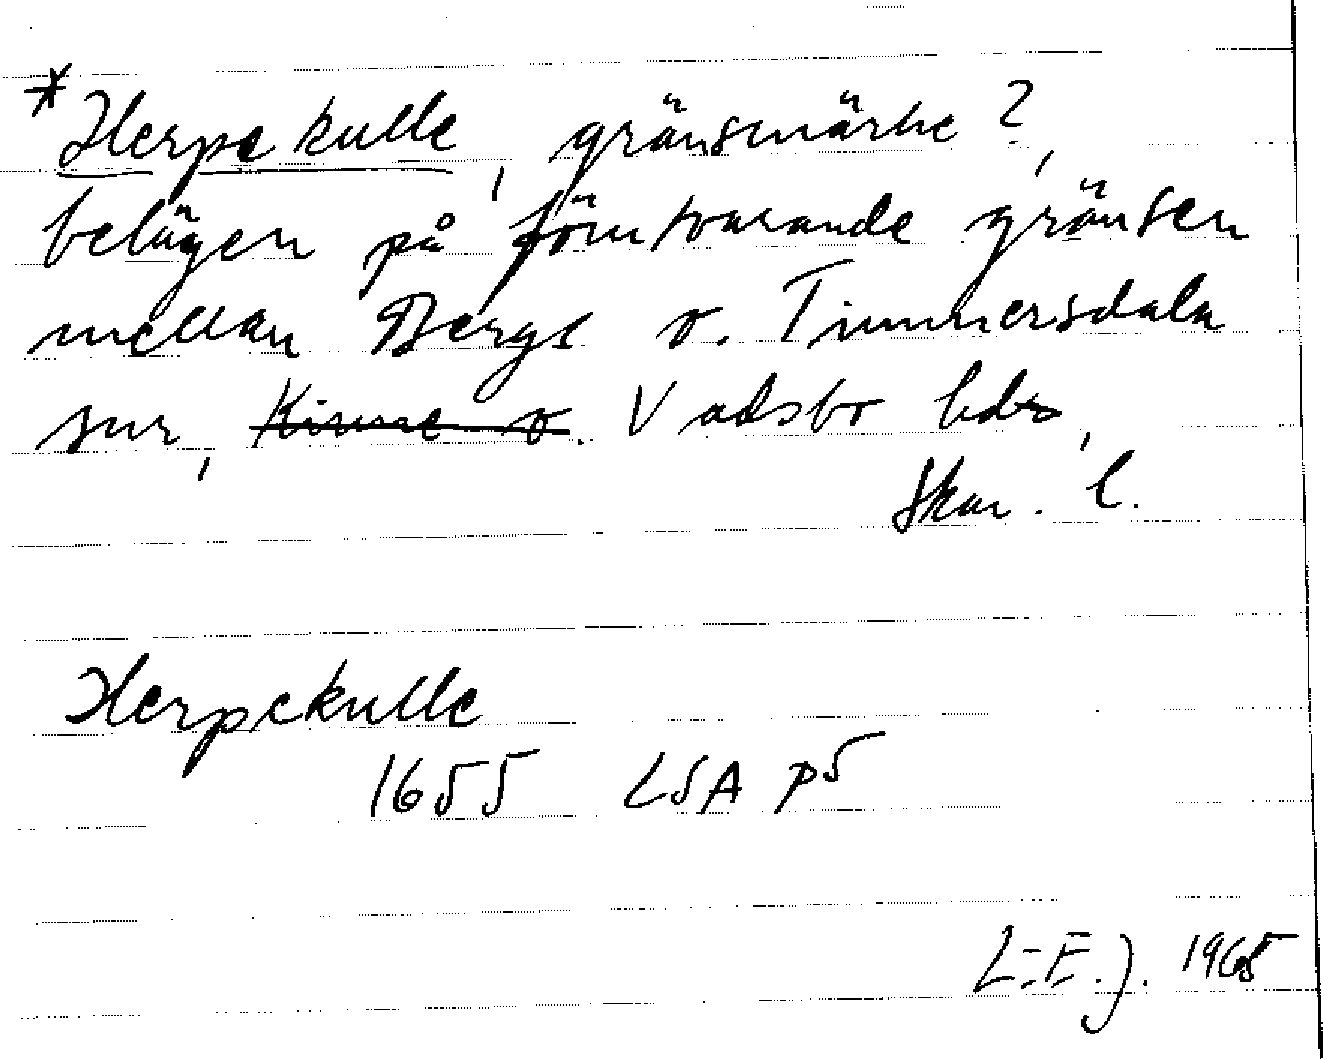 *Herpekulle, gränsmärke?,
belägen på förutvarande gränsen
mellan Bergs o. Timmersdala
snr, Kinne o. Vadsbo hdr,
Skar. l.
Herpekulle
1655 LSA p5
L-E. J. 1965